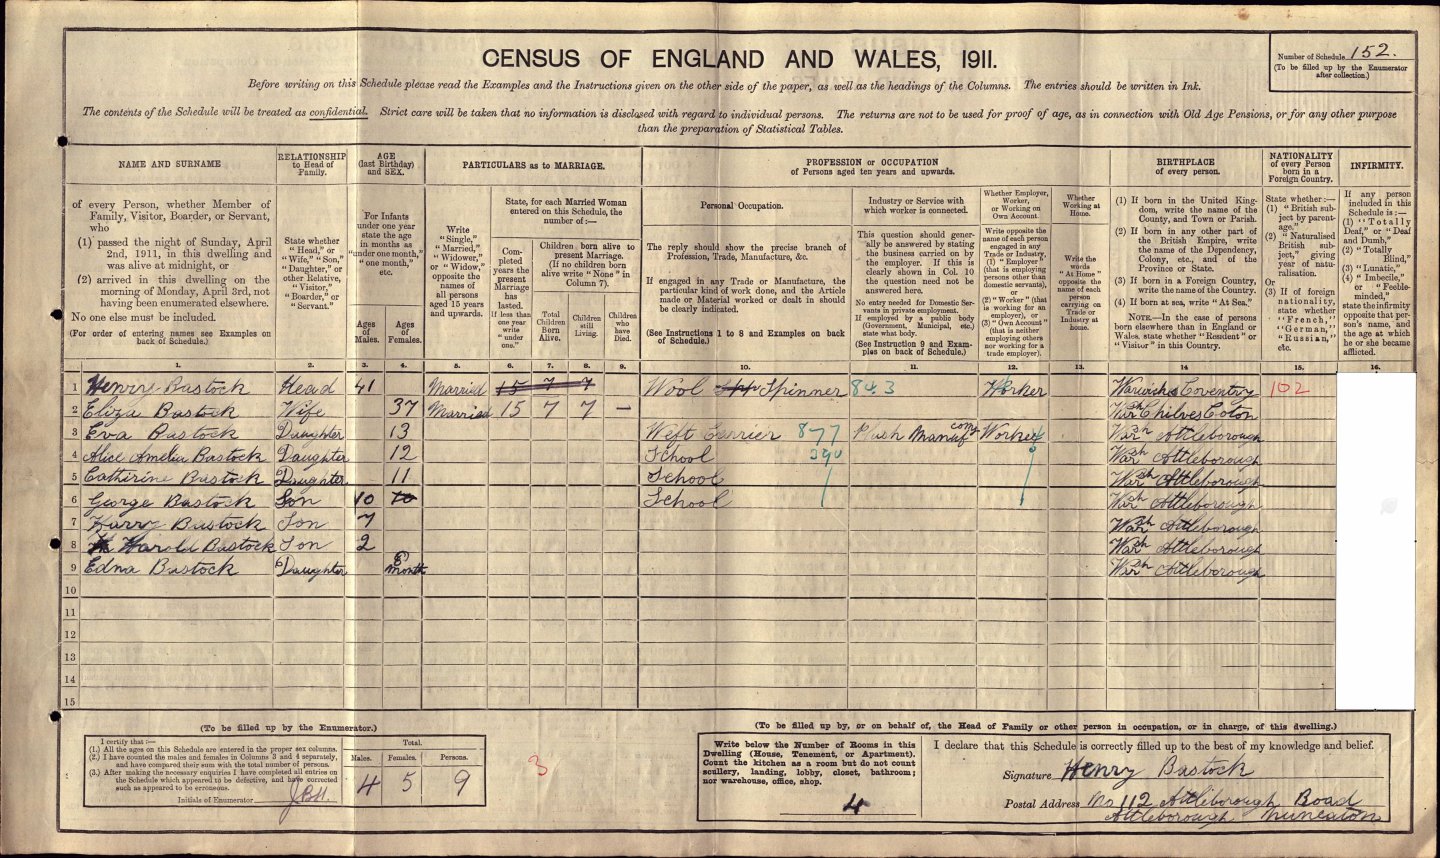 CENSUS OF ENGLAND AND WALES, 1911.
Number of Schedule 152.
(To be filled up by the Enumerator after collection.)
Before writing on this Schedule please read the Examples and the Instructions given on the other side of the paper, as well as the headings of the Columns. The entries should be written in Ink.
The contents of the Schedule will be treated as confidential. Strict care will be taken that no information is disclosed with regard to individual persons. The returns are not to be used for proof of age, as in connection with Old Age Pensions, or for any other purpose
than the preparation of Statistical Tables.
NAME AND SURNAME
of every Person, whether Member of Family, Visitor, Boarder, or Servant, who
(1) passed the night of Sunday, April 2nd, 1911, in this dwelling and was alive at midnight, or
(2) arrived in this dwelling on the morning of Monday, April 3rd, not having been enumerated elsewhere.
No one else must be included.
(For order of entering names see Examples on back of Schedule.)
RELATIONSHIP to Head of Family.
State whether "Head," or "Wife," "Son," "Daughter," or other Relative, "Visitor," "Boarder," or "Servant."
AGE (last Birthday) and SEX.
For Infants under one year state the age in months as "under one month," "one month," etc.
Ages of Males.
Ages of Females.
PARTICULARS as to MARRIAGE.
Write "Single," "Married," "Widower," or "Widow," opposite the names of all persons aged 15 years and upwards.
State, for each Married Woman entered on this Schedule, the number of :—
Completed years the present Marriage has lasted. If less than one year write "under one."
Children born alive to present Marriage. (If no children born alive write "None" in Column 7).
Total Children Born Alive.
Children still Living.
Children who have Died.
PROFESSION or OCCUPATION of Persons aged ten years and upwards.
Personal Occupation.
The reply should show the precise branch of Profession, Trade, Manufacture, &c.
If engaged in any Trade or Manufacture, the particular kind of work done, and the Article made or Material worked or dealt in should be clearly indicated.
(See Instructions 1 to 8 and Examples on back of Schedule.)
Industry or Service with which worker is connected.
This question should generally be answered by stating the business carried on by the employer. If this is clearly shown in Col. 10 the question need not be answered here.
No entry needed for Domestic Servants in private employment. If employed by a public body (Government, Municipal, etc.) state what body.
(See Instruction 9 and Examples on back of Schedule.)
Whether Employer, Worker, or Working on Own Account.
Write opposite the name of each person engaged in any Trade or Industry, (1) "Employer" (that is employing persons other than domestic servants), or (2) "Worker" (that is working for an employer), or (3) "Own Account" (that is neither employing others nor working for a trade employer).
Whether Working at Home.
Write the words "At Home" opposite the name of each person carrying on Trade or Industry at home.
BIRTHPLACE of every person.
(1) If born in the United Kingdom, write the name of the County, and Town or Parish.
(2) If born in any other part of the British Empire, write the name of the Dependency, Colony, etc., and of the Province or State.
(3) If born in a Foreign Country, write the name of the Country.
(4) If born at sea, write "At Sea."
NOTE.—In the case of persons born elsewhere than in England or Wales, state whether "Resident" or "Visitor" in this Country.
NATIONALITY of every Person born in a Foreign Country.
State whether :—
(1) "British subject by parentage."
(2) "Naturalised British subject," giving year of naturalisation.
Or
(3) If of foreign nationality, state whether "French," "German," "Russian," etc.
INFIRMITY.
If any person included in this Schedule is :—
(1) "Totally Deaf," or "Deaf and Dumb,"
(2) "Totally Blind,"
(3) "Lunatic,"
(4) "Imbecile," or "Feeble-minded,"
state the infirmity opposite that person's name, and the age at which he or she became afflicted.
1. 2. 3. 4. 5. 6. 7. 8. 9. 10. 11. 12. 13. 14 15. 16.
1 Henry Bastock Head 41 Married 15 7 7 Wool Spinner 843 Worker Warwicks Coventry 102
2 Eliza Bastock Wife 37 Married 15 7 7 — Warsh Chilvers Coton
3 Eva Bastock Daughter 13 Weft Carrier 877 Plush Manuf comy Worker Warsh Attleborough
4 Alice Amelia Bastock Daughter 12 School 390 Warsh Attleborough
5 Catherine Bastock Daughter 11 School Warsh Attleborough
6 George Bastock Son 10 10 School Warsh Attleborough
7 Harry Bastock Son 7 Warsh Attleborough
8 Harold Bastock Son 2 Warsh Attleborough
9 Edna Bastock Daughter month Warsh Attleborough
10
11
12
13
14
15
(To be filled up by the Enumerator.)
I certify that :—
(1.) All the ages on this Schedule are entered in the proper sex columns.
(2.) I have counted the males and females in Columns 3 and 4 separately, and have compared their sum with the total number of persons.
(3.) After making the necessary enquiries I have completed all entries on the Schedule which appeared to be defective, and have corrected such as appeared to be erroneous.
Initials of Enumerator
Total.
Males. Females. Persons.
4 5 9
3
(To be filled up by, or on behalf of, the Head of Family or other person in occupation, or in charge, of this dwelling.)
Write below the Number of Rooms in this Dwelling (House, Tenement, or Apartment). Count the kitchen as a room but do not count scullery, landing, lobby, closet, bathroom; nor warehouse, office, shop.
4
I declare that this Schedule is correctly filled up to the best of my knowledge and belief.
Signature Henry Bastock
Postal Address No 112 Attleborough Road
Attleborough Nuneaton